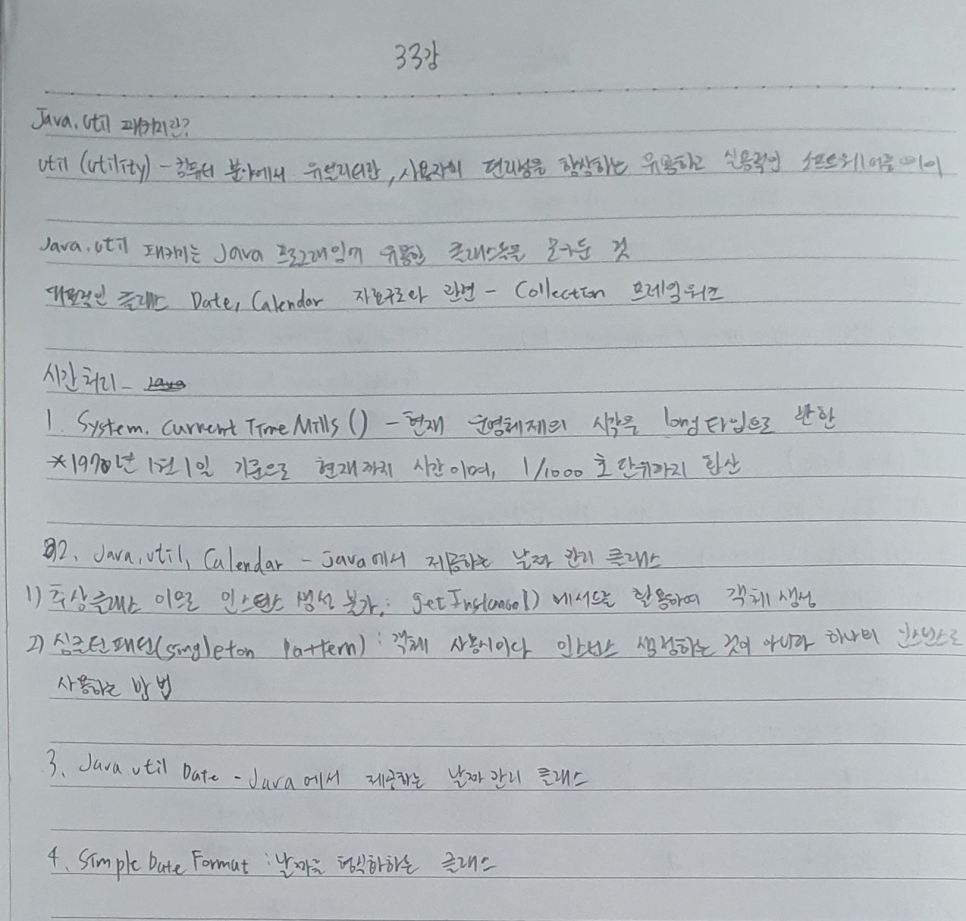 33강
Java.util 패키지란?
util (utility) - 컴퓨터 분야에서 유틸리티란, 사용자의 편리성을 향상하는 유용하고 실용적인 소프트웨어를
Java.util 패키지는 Java 프로그래밍에 유용한 클래스들을 모아둔 것
대표적인 클래스 Date, Calendar 자료구조와 관련 - Collection 프레임워크
시간처리 -
1. System. current Time Mills () - 현재 운영체제의 시각을 long 타입으로 반환
*1970년 1월 1일 기준으로 현재까지 시간이며, 1/1000 초 단위까지 환산
2. Java.util, Calendar - Java에서 제공하는 날짜 관리 클래스
1) 추상클래스 이므로 인스턴스 생성 불가, getInstance() 메서드를 활용하여 객체 생성
2) 싱글턴패턴(singleton pattern) : 객체 사용시마다 인스턴스 생성하는 것이 아니라 하나의 인스턴스로
사용하는 방법
3. Java util Date - Java에서 제공하는 날짜 관리 클래스
4. Simple Date Format : 날짜를 형식화하는 클래스